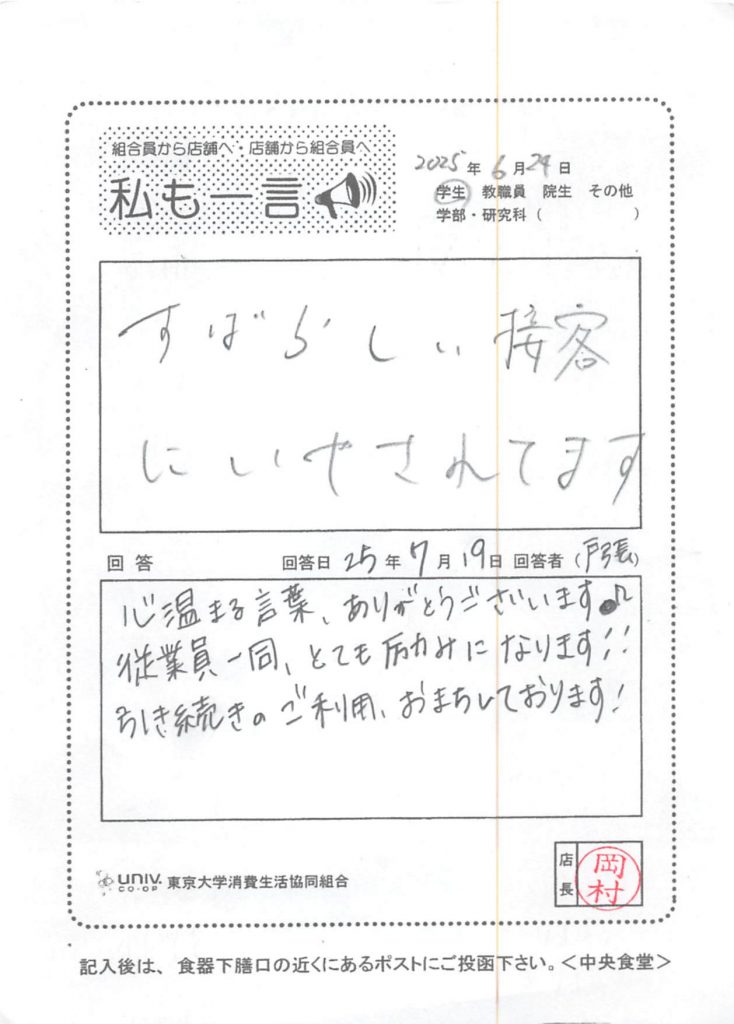 組合員から店舗へ・店舗から組合員へ
私も一言
2025年6月24日
学生 教職員 院生 その他
学部・研究科（　　　）
すばらしい接客
にいやされてます
回答　回答日 25年7月19日 回答者（戸張）
心温まる言葉、ありがとうございます♪
従業員一同、とても励みになります!!
引き続きのご利用、おまちしております!
UNIV. CO-OP 東京大学消費生活協同組合
店長 岡村
記入後は、食器下膳口の近くにあるポストにご投函下さい。＜中央食堂＞